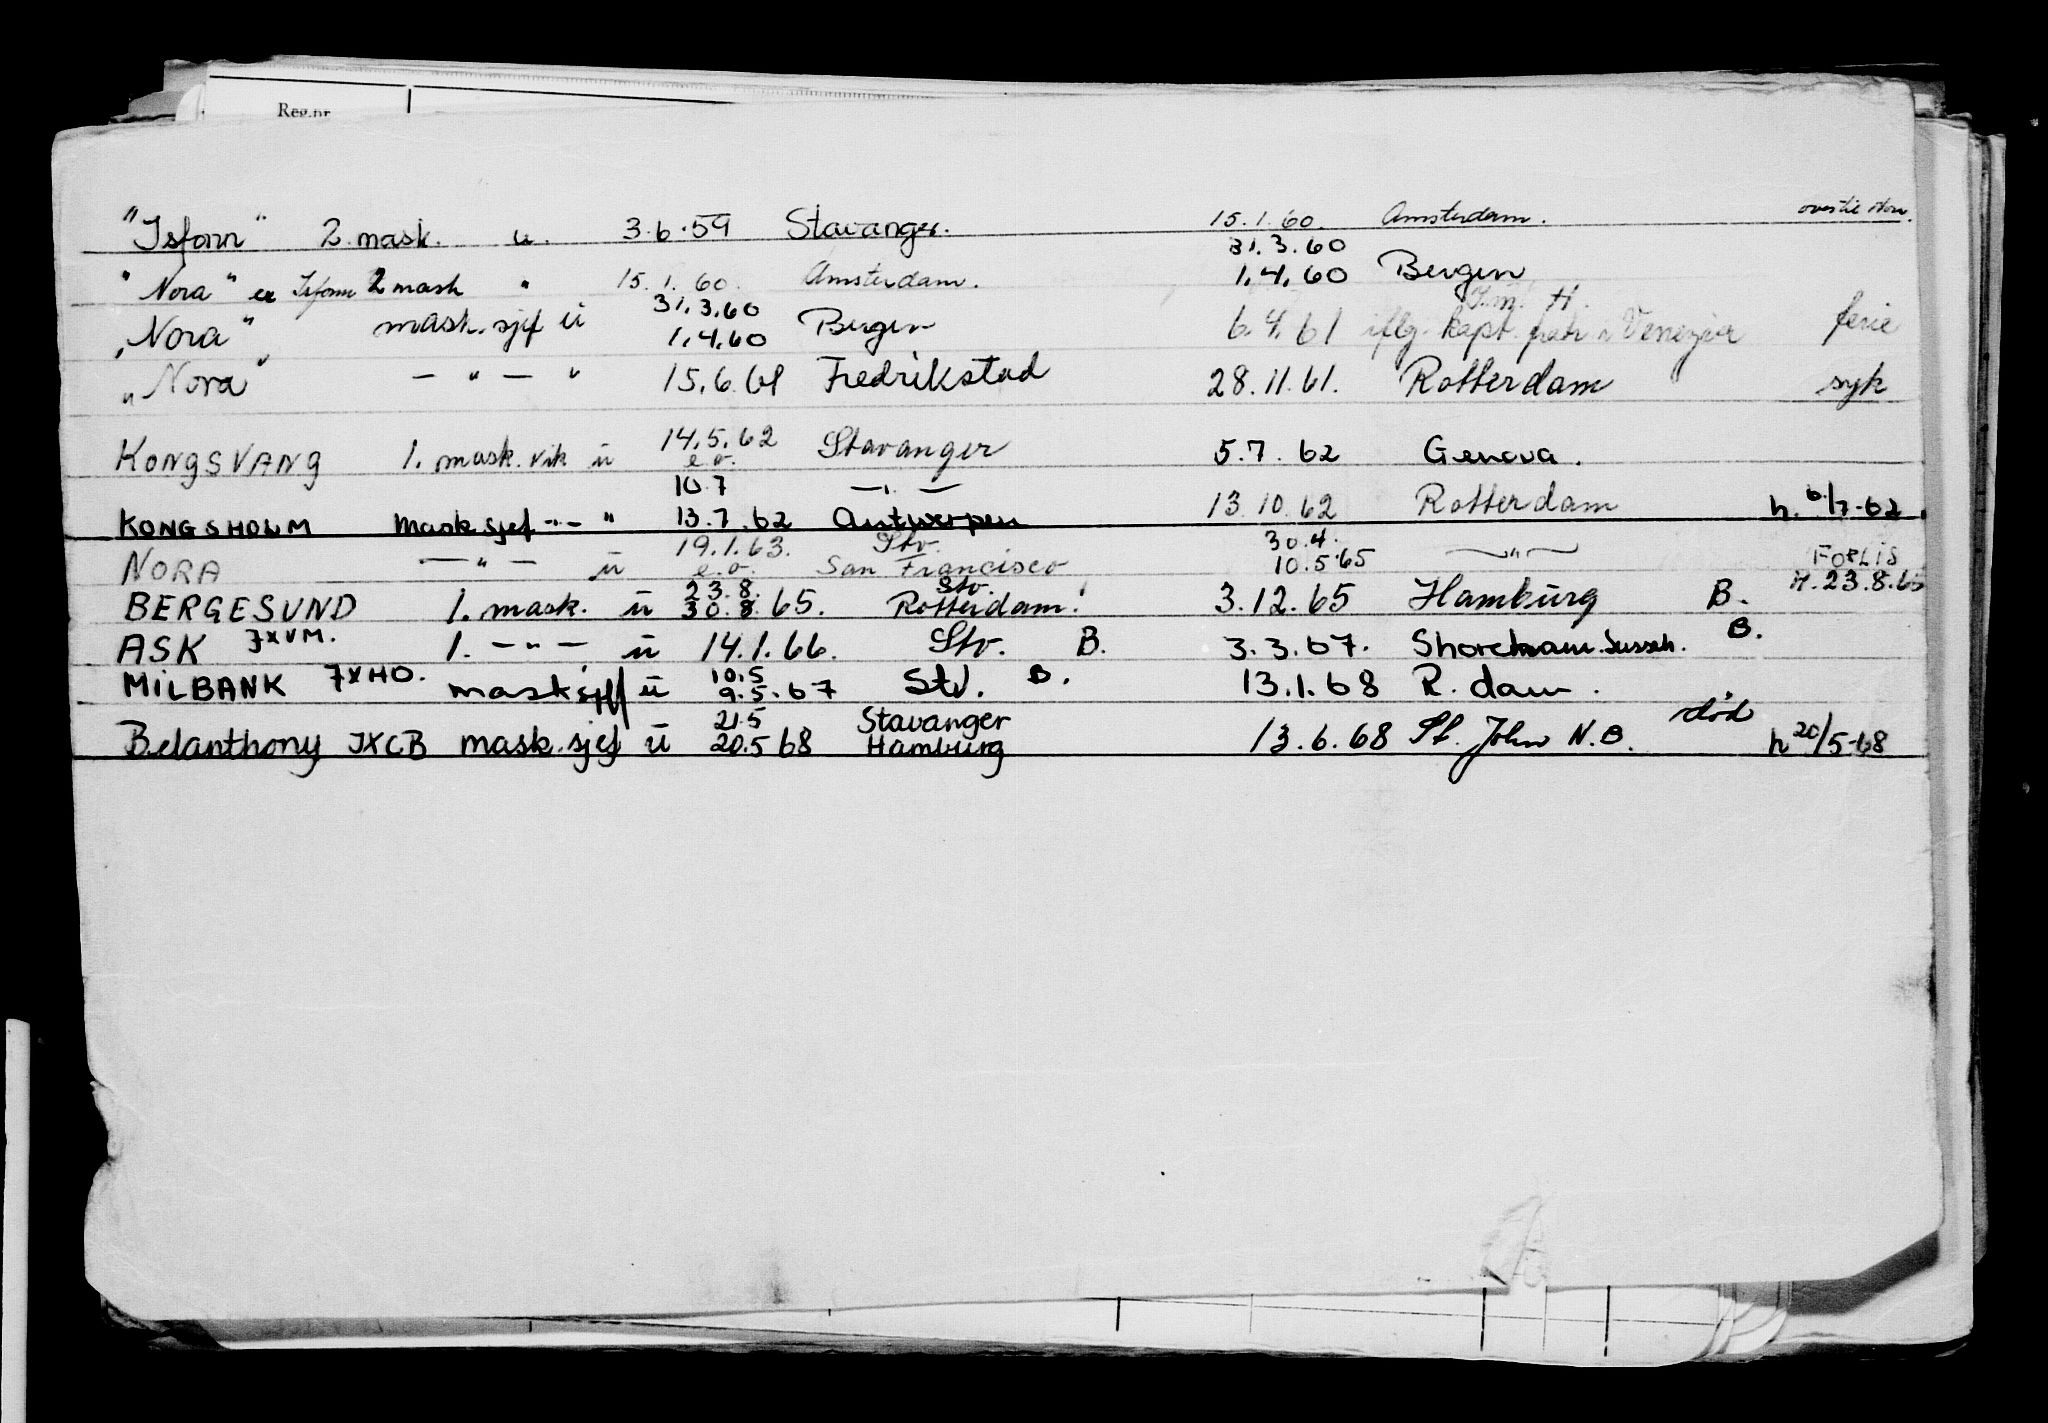 Reg.nr.
"Isfonn" 2. mask. u. 3.6.59 Stavanger. 15.1.60. Amsterdam.
31.3.60
"Nora" ex Isfonn 2 mask " 15.1.60. Amsterdam. 1.4.60 Bergen
31.3.60
"Nora" mask.sjef ü 1.4.60 Bergen 6.4.61 iflg. kapt. Venezia ferie
"Nora" — " — " 15.6.61 Fredrikstad 28.11.61. Rotterdam syk
14.5.62
KONGSVANG 1. mask. vik ü e.o. Stavanger 5.7.62 Genova.
10.7 — " —
KONGSHOLM Mask sjef -"- " 13.7.62 Antwerpen 13.10.62 Rotterdam h. 6/7-62.
19.1.63. Stv. 30.4.
NORA — " — ü e.o. San Francisco 10.5.65 — " — FORLIS
23.8. Stv. H. 23.8.65
BERGESUND 1. mask. ü 30.8.65. Rotterdam. 3.12.65 Hamburg B.
ASK JXVM. 1. — " — ü 14.1.66. Stv. B. 3.3.67. Shoreham. Sussex. B.
10.5
MILBANK JXHO. masksjef ü 9.5.67 Stv. B. 13.1.68 R.dam.
21.5 Stavanger død
Belanthony JXCB mask.sjef ü 20.5 68 Hamburg 13.6.68 St. John N.B. h 20/5-68